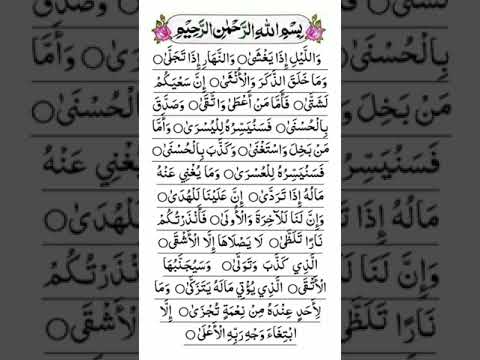 بِسْمِ اللهِ الرَّحْمٰنِ الرَّحِيْمِ
وَاللَّيْلِ إِذَا يَغْشَىٰ ○ وَالنَّهَارِ إِذَا تَجَلَّىٰ ○
وَمَا خَلَقَ الذَّكَرَ وَالْأُنْثَىٰ ○ إِنَّ سَعْيَكُمْ
لَشَتَّىٰ ○ فَأَمَّا مَنْ أَعْطَىٰ وَاتَّقَىٰ ○ وَصَدَّقَ
بِالْحُسْنَىٰ ○ فَسَنُيَسِّرُهُ لِلْيُسْرَىٰ ○ وَأَمَّا
مَنْ بَخِلَ وَاسْتَغْنَىٰ ○ وَكَذَّبَ بِالْحُسْنَىٰ ○
فَسَنُيَسِّرُهُ لِلْعُسْرَىٰ ○ وَمَا يُغْنِي عَنْهُ
مَالُهُ إِذَا تَرَدَّىٰ ○ إِنَّ عَلَيْنَا لَلْهُدَىٰ ○
وَإِنَّ لَنَا لَلْآخِرَةَ وَالْأُولَىٰ ○ فَأَنْذَرْتُكُمْ
نَارًا تَلَظَّىٰ ○ لَا يَصْلَاهَا إِلَّا الْأَشْقَى ○
الَّذِي كَذَّبَ وَتَوَلَّىٰ ○ وَسَيُجَنَّبُهَا
الْأَتْقَى ○ الَّذِي يُؤْتِي مَالَهُ يَتَزَكَّىٰ ○ وَمَا
لِأَحَدٍ عِنْدَهُ مِنْ نِعْمَةٍ تُجْزَىٰ ○ إِلَّا
ابْتِغَاءَ وَجْهِ رَبِّهِ الْأَعْلَىٰ ○